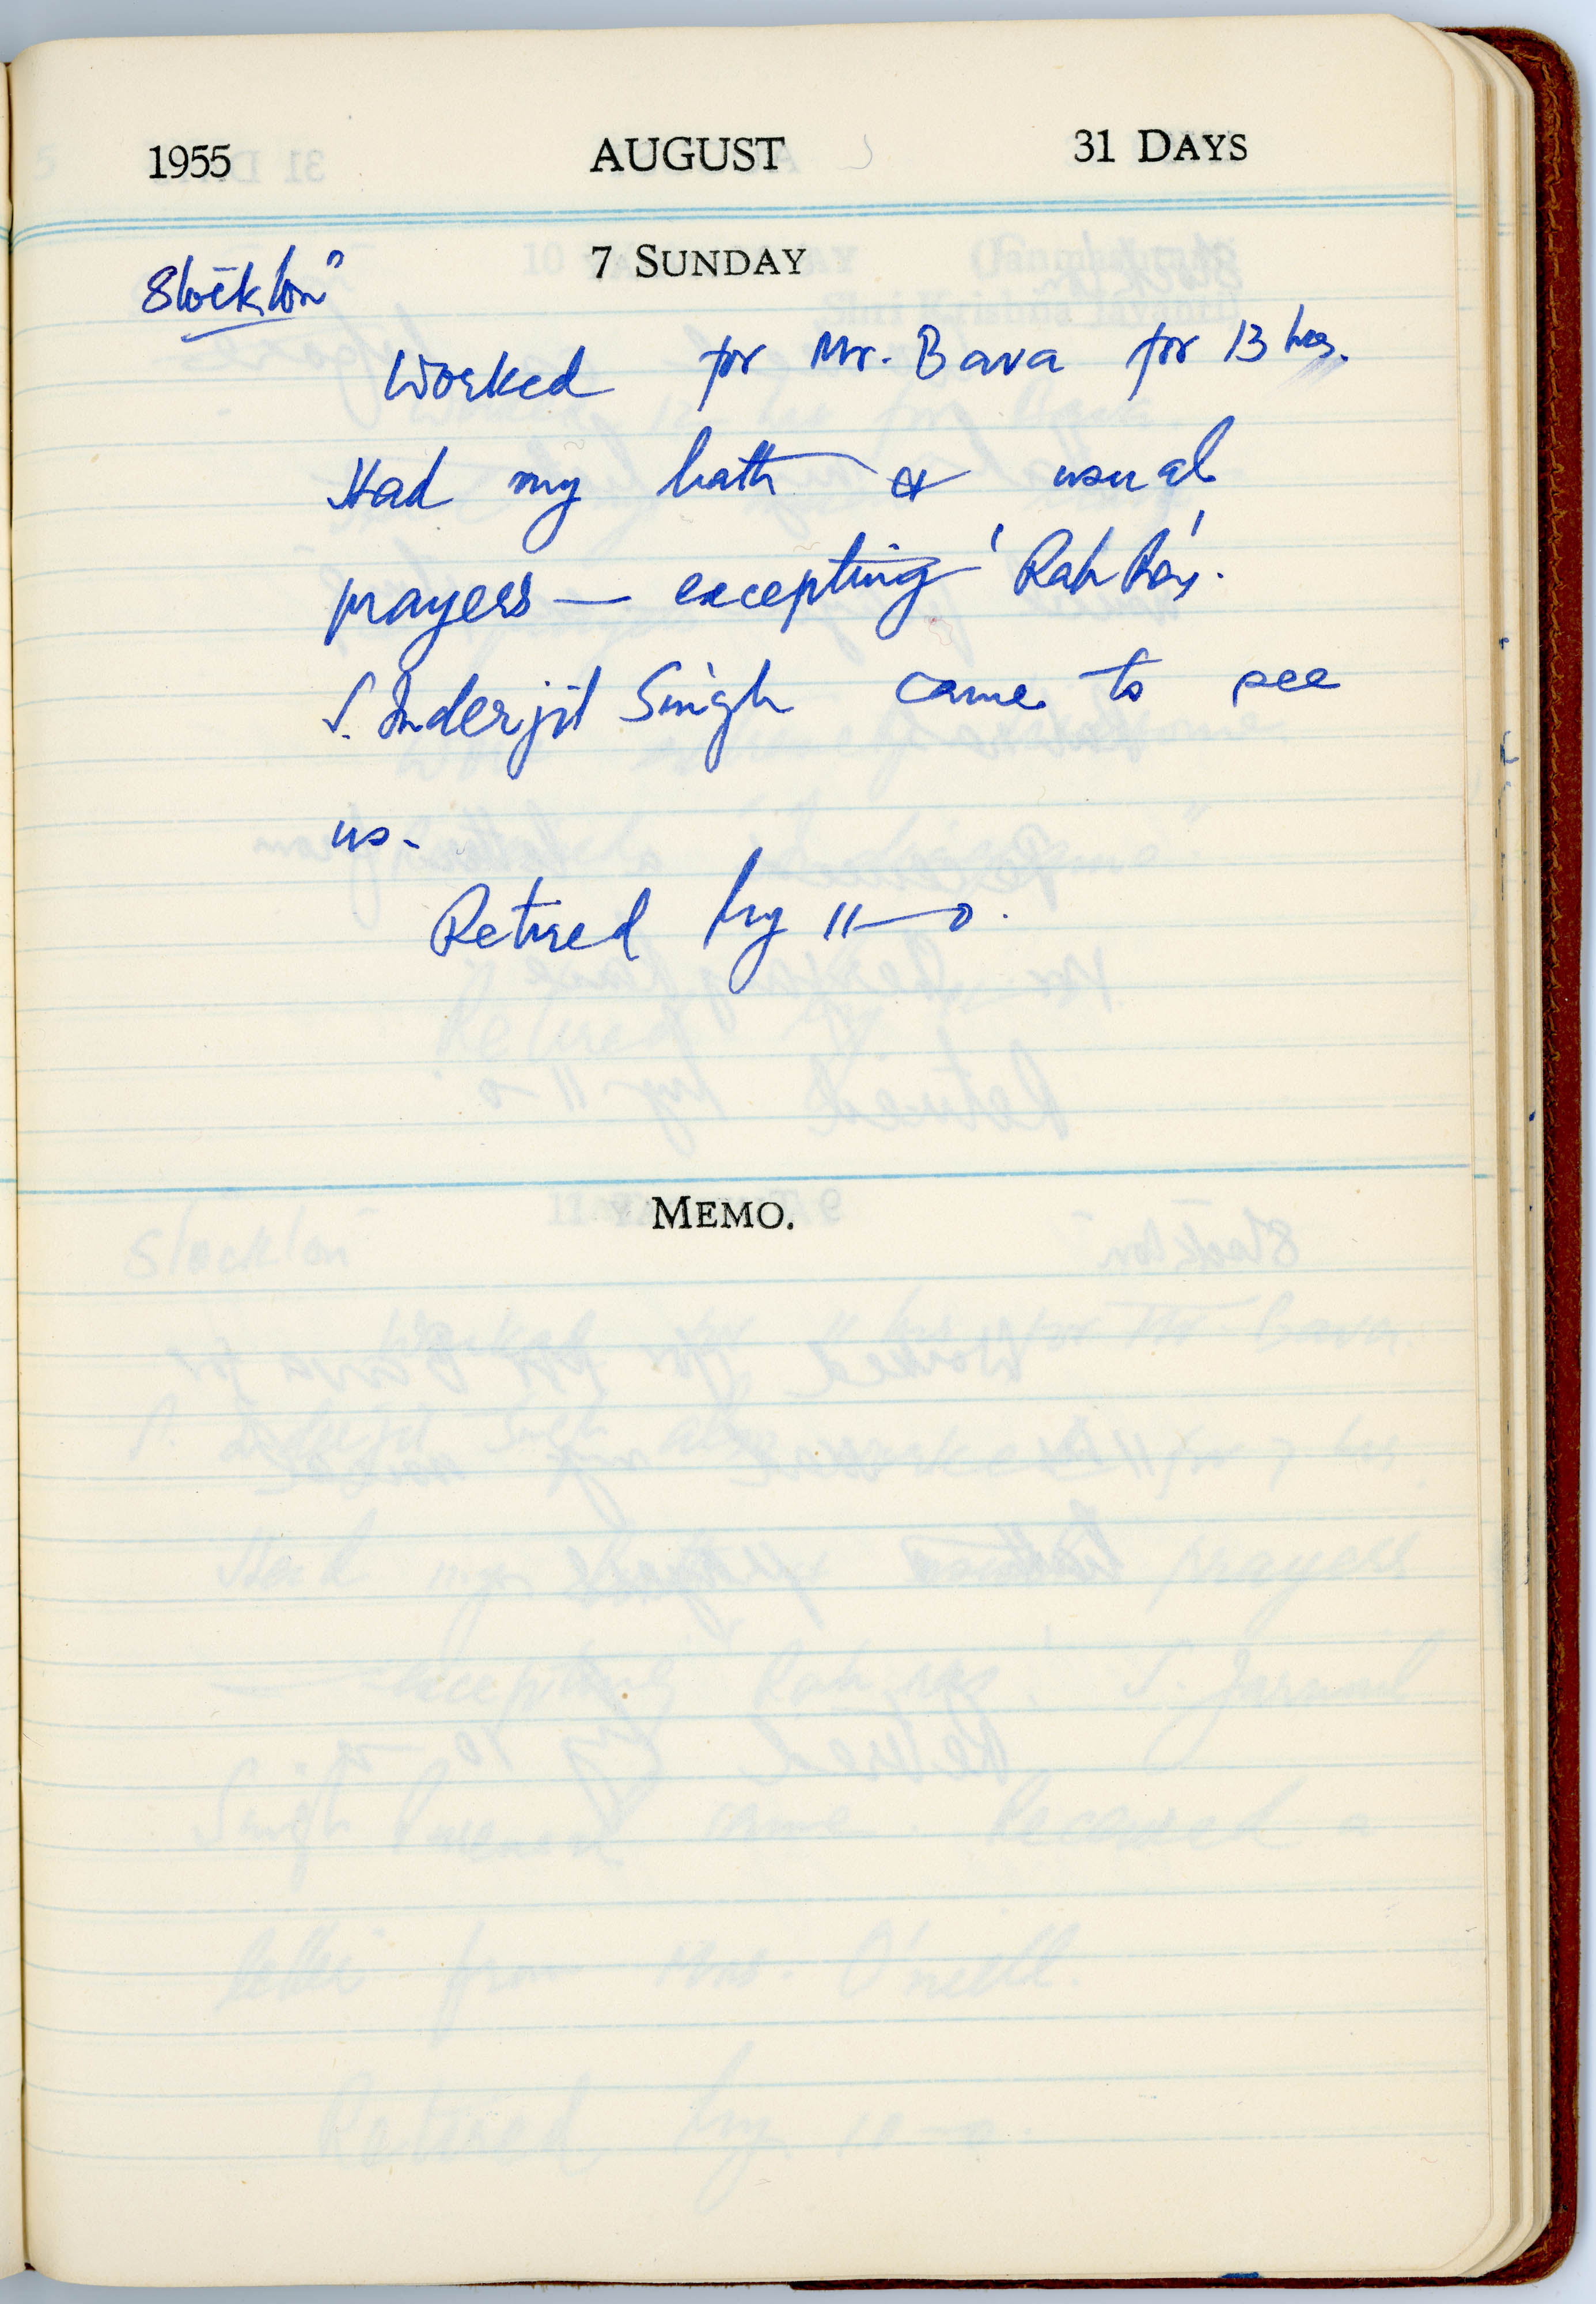 1955 AUGUST 31 DAYS
7 SUNDAY
Stockton"
Worked for Mr. Bava for 13 hrs.
Had my bath & usual
prayers — excepting 'Rah Ras'.
S. Inderjit Singh came to see
us.
Retired by 11—0.
MEMO.